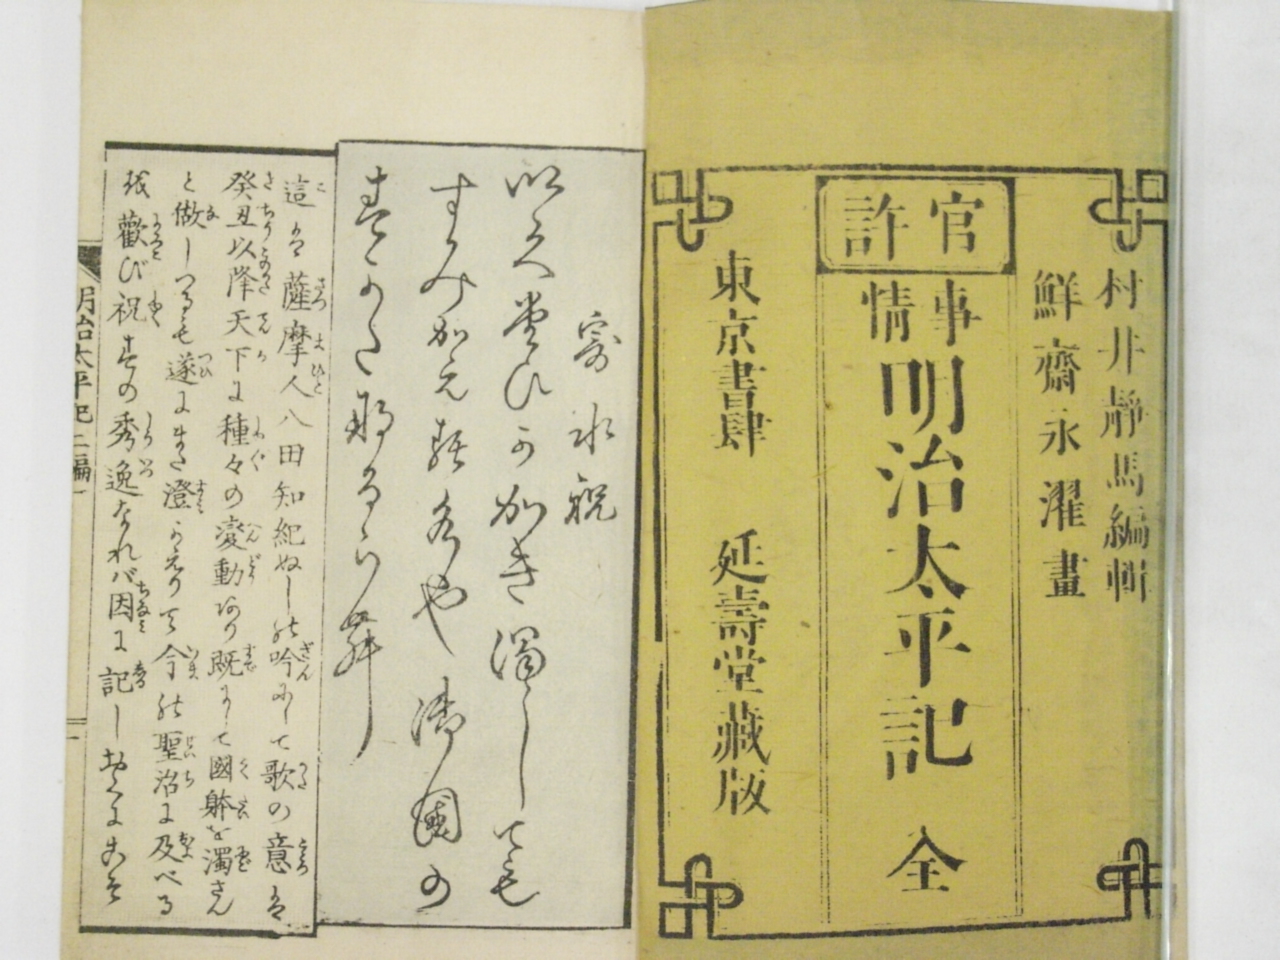 村井靜馬編輯
鮮齋永濯畫
官許
事情
明治太平記 全
東京書肆 延壽堂藏版
寄水祝
すみかえる 御國の
這は薩摩人八田知紀ぬしの吟にして歌の意は
癸丑以降天下に種々の変動あり既にして國躰を濁さん
と做しつるも遂にまた澄かえりて今の聖治に及べる
を歡び祝すの秀逸なれバ因に記しおくにこそ
明治太平記二編